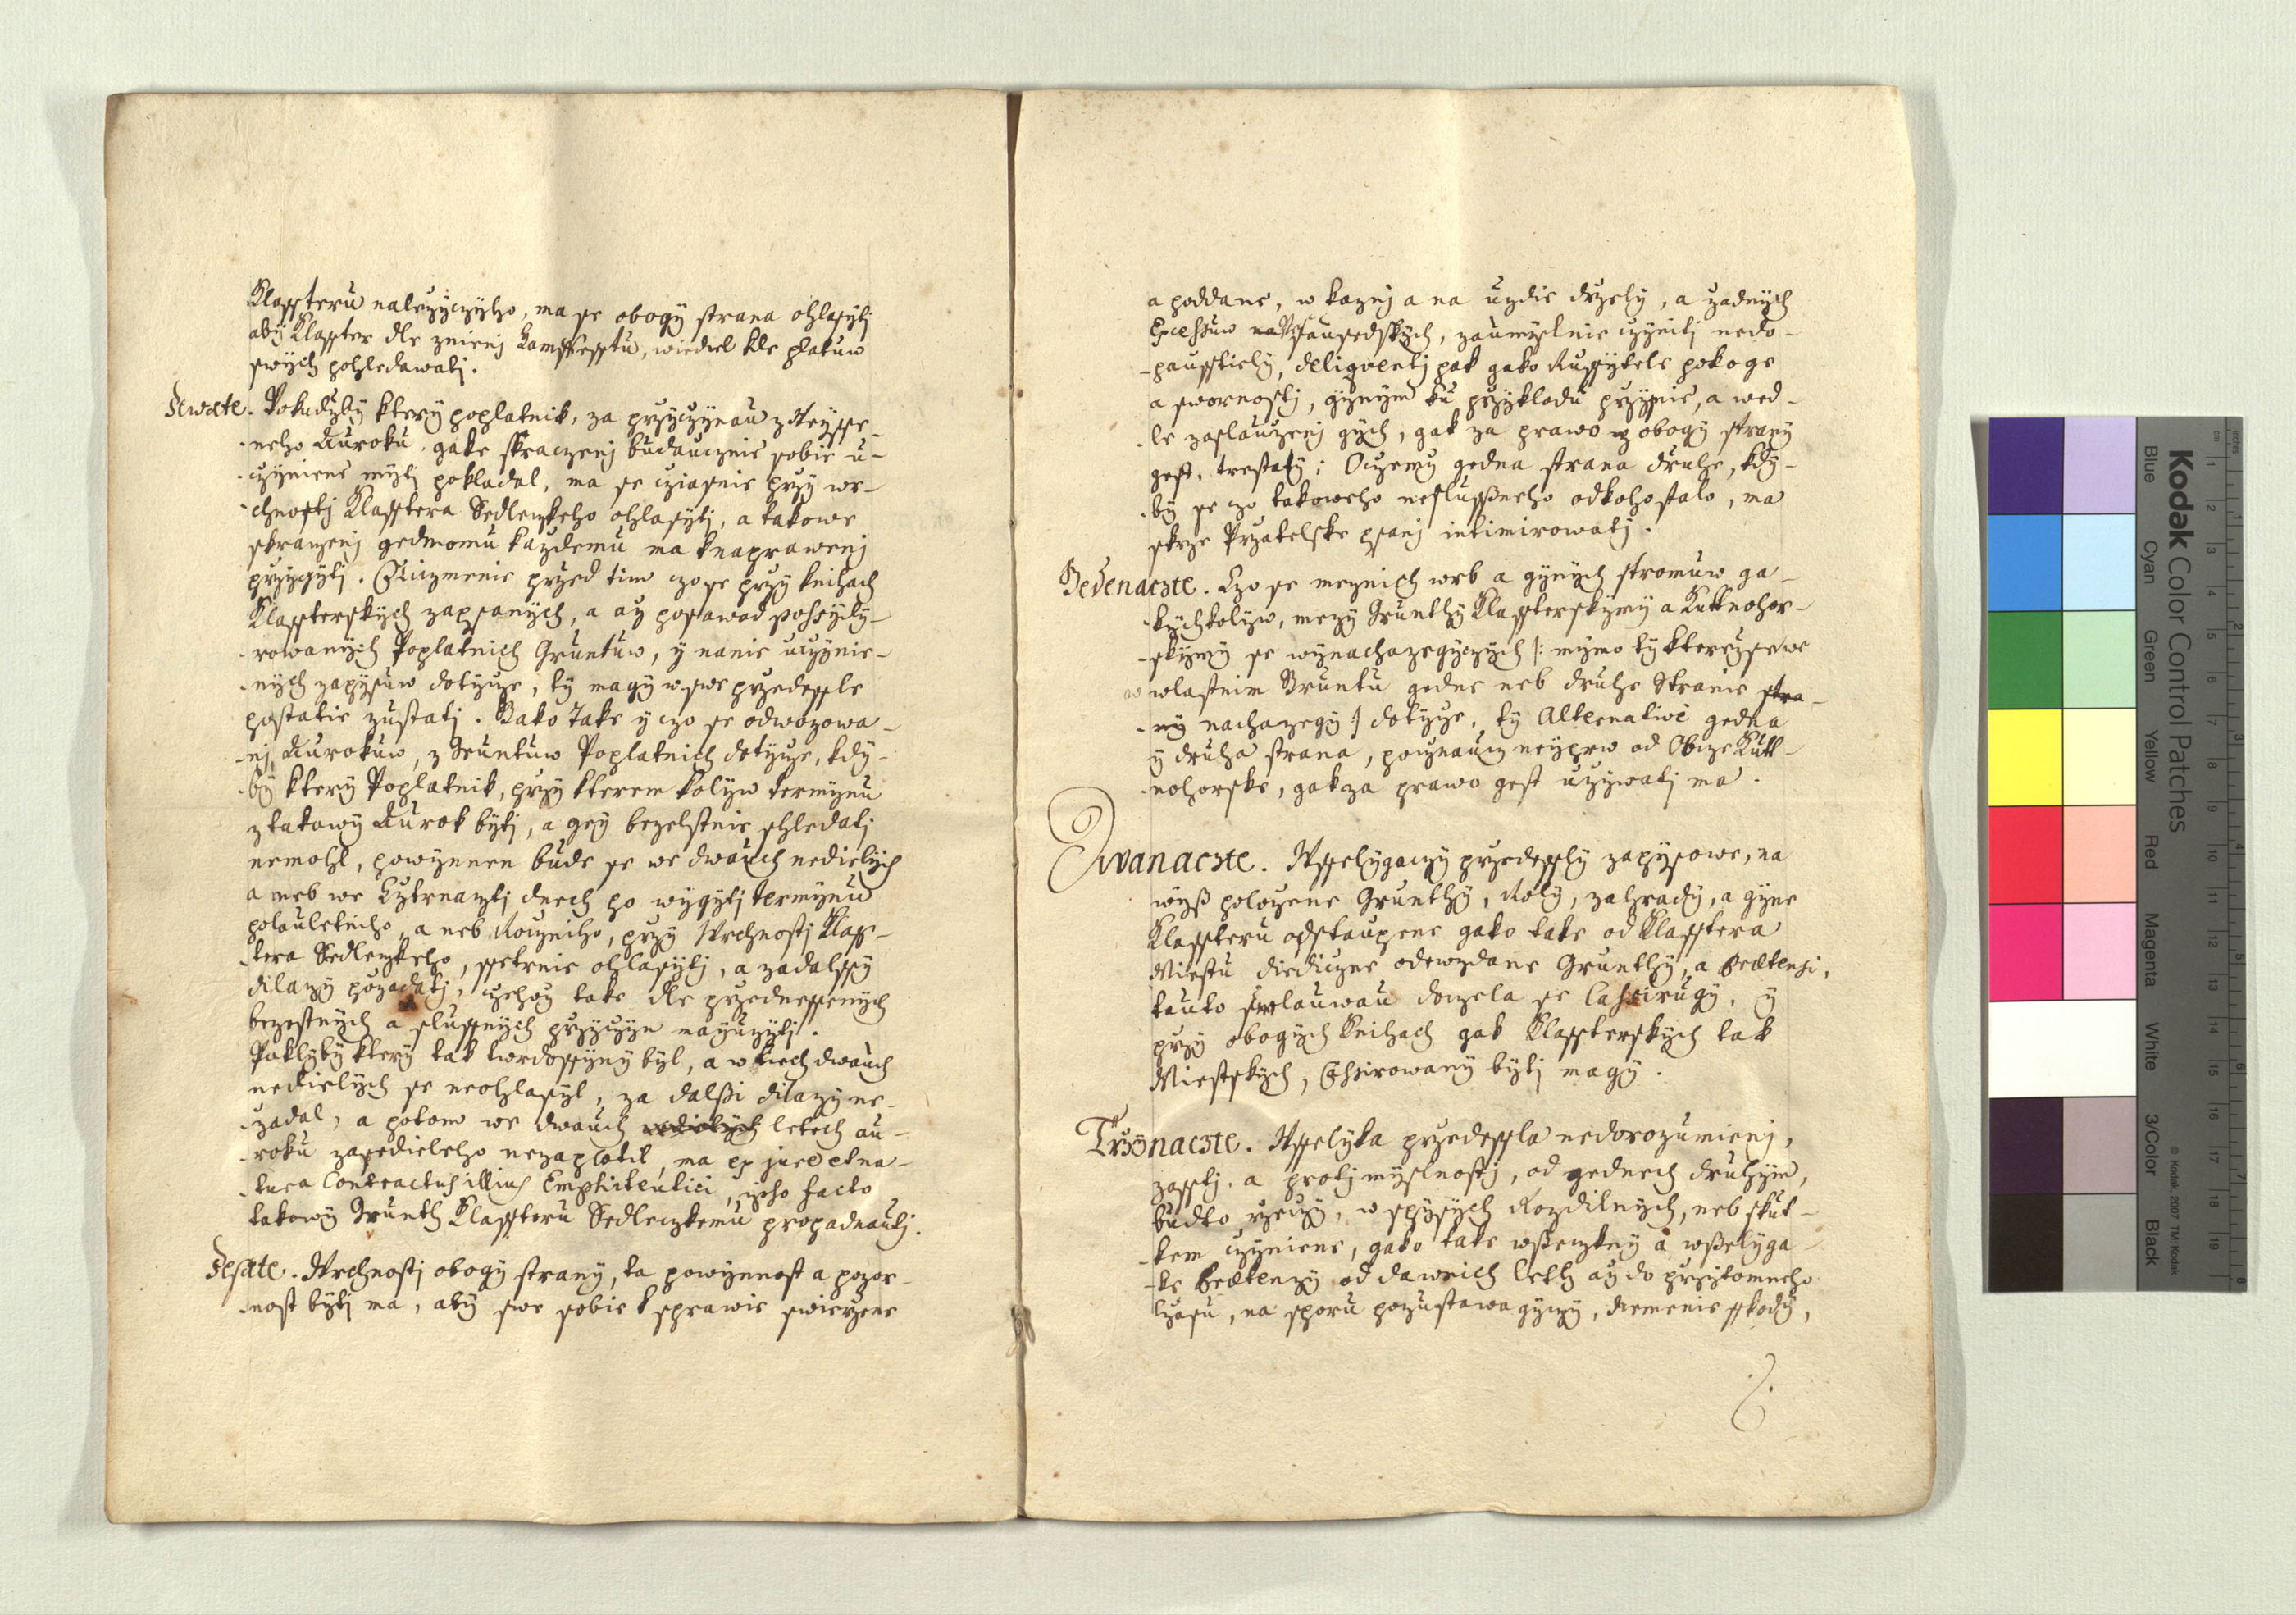 Klassteru naležyczyho, ma se obogy strana ohlasytj
aby Klasster dle znienj Hamffesstu, wiediel kde platuw
swych pohledawatj.
Dewate. Pokudžby ktery poplatnik, za przyczynau zteysse-
neho Auroku, gake skraczenj budaucznie sobie u-
czyniene mytj pokladal, ma se cziasnie przy wr-
chnostj Klasstera Sedlenskeho ohlasytj, a takowe
skranzenj gednomu každemu ma knaprawenj
przygytj. Niczmenie przed tim czo se przy knihach
Klassterskych zapsanych, a až posawad possyty-
rowanych Poplatnich Gruntuw, y nanie uczynie-
nych zapysuw dotyže, ty magy w swe przedessle
postatie zustatj. Jako Take y czo se odwozowa-
nj Aurokuw, z Gruntuw Poplatnich dotyže, kdy-
by ktery Poplatnik, przy kterem kolyw termynu
z takowy Aurok bytj, a gey bezelstnie shledatj
nemohl, powynnen bude se we dwauch nedielych
a neb we Cztrnaztj dnech po wygytj termynu
polauletniho, a neb Roczniho, przy Wrchnostj Klas-
tera Sedlenskeho, ssetrnie ohlasytj, a zadalssy
dilazy požadatj, czehoy take dle przednessenych
bezestnych a slussnych przyczyn may užytj.
Paklyby ktery tak twrdossyny byl, a w tiech dwauch
nedielych se neohlasyl, za dalßi dilazy ne-
žadal, a potom we dwauch nedielych letech au-
roku zasedieleho nezaplatil, ma ex jure et na-
tura Contractus illius Emphiteutici, ipso facto
takowy Grunth Klassteru Sedleczkemu propadnautj.
Desate. Wrchnostj obogy strany, ta powynnost a pozor-
nost bytj ma, aby swe sobie k sprawie swierzene
a poddane, w kaznj a na uzdie drzely, a žadnych
Excessuw na sausedskych, zaumyslnie czynitj nedo-
paustiely, deliqventj pak gako Russytele pokoge
a swornostj, gynym ku przykladu przysnie, a wed-
le zaslauženj gych, gak za prawo z obogy strany
gest, trestaly; Oczemž gedna strana druhe, kdy-
by se czo takoweho neslußneho odkohostalo, ma
skrze Przatelske psanj intimirowatj.
Jedenaczte. Czo se meznich wrb a gynych stromuw ga-
kychkolyw, mezy Grunthy Klassterskymy a Kuttnohor-
skymy se wynachazegyczych /: mymo ty kterežsewe
w wlastnim Gruntu gedne neb druhe Stranie stra-
ny nachazegy :/ dotyže, ty Alternativè gedna
y druha strana, poczynauz neyprw od Obcze Kutt-
nohorske, gak za prawo gest užywatj ma.
Dwanaczte. Wsselygaczy przedessly zapysowe, na
wyß položene Grunthy, Roly, zahrady, a gyne
Klassteru odstaupene gako take od Klasstera
Miestu diediczne odewzdane Grunthy, a Prætensi,
tauto smlauwau docela se Cassirugy, y
przy obogych Knihach gak Klassterskych tak
Miestskych, Cassirowany bytj magy.
Trzynaczte. Wsselyka przedessla nedorozumienj,
zasstj, a protj myslnostj, od gednech druhym,
budto rzeczy, w spysych Rozdilnych, neb skut-
kem czyniene, gako take wßeczkny a wßelyga-
ke Prætenzy od dawnich leth až do przytomneho
čzasu, na sporu pozustawagyczy, summenie sskody,